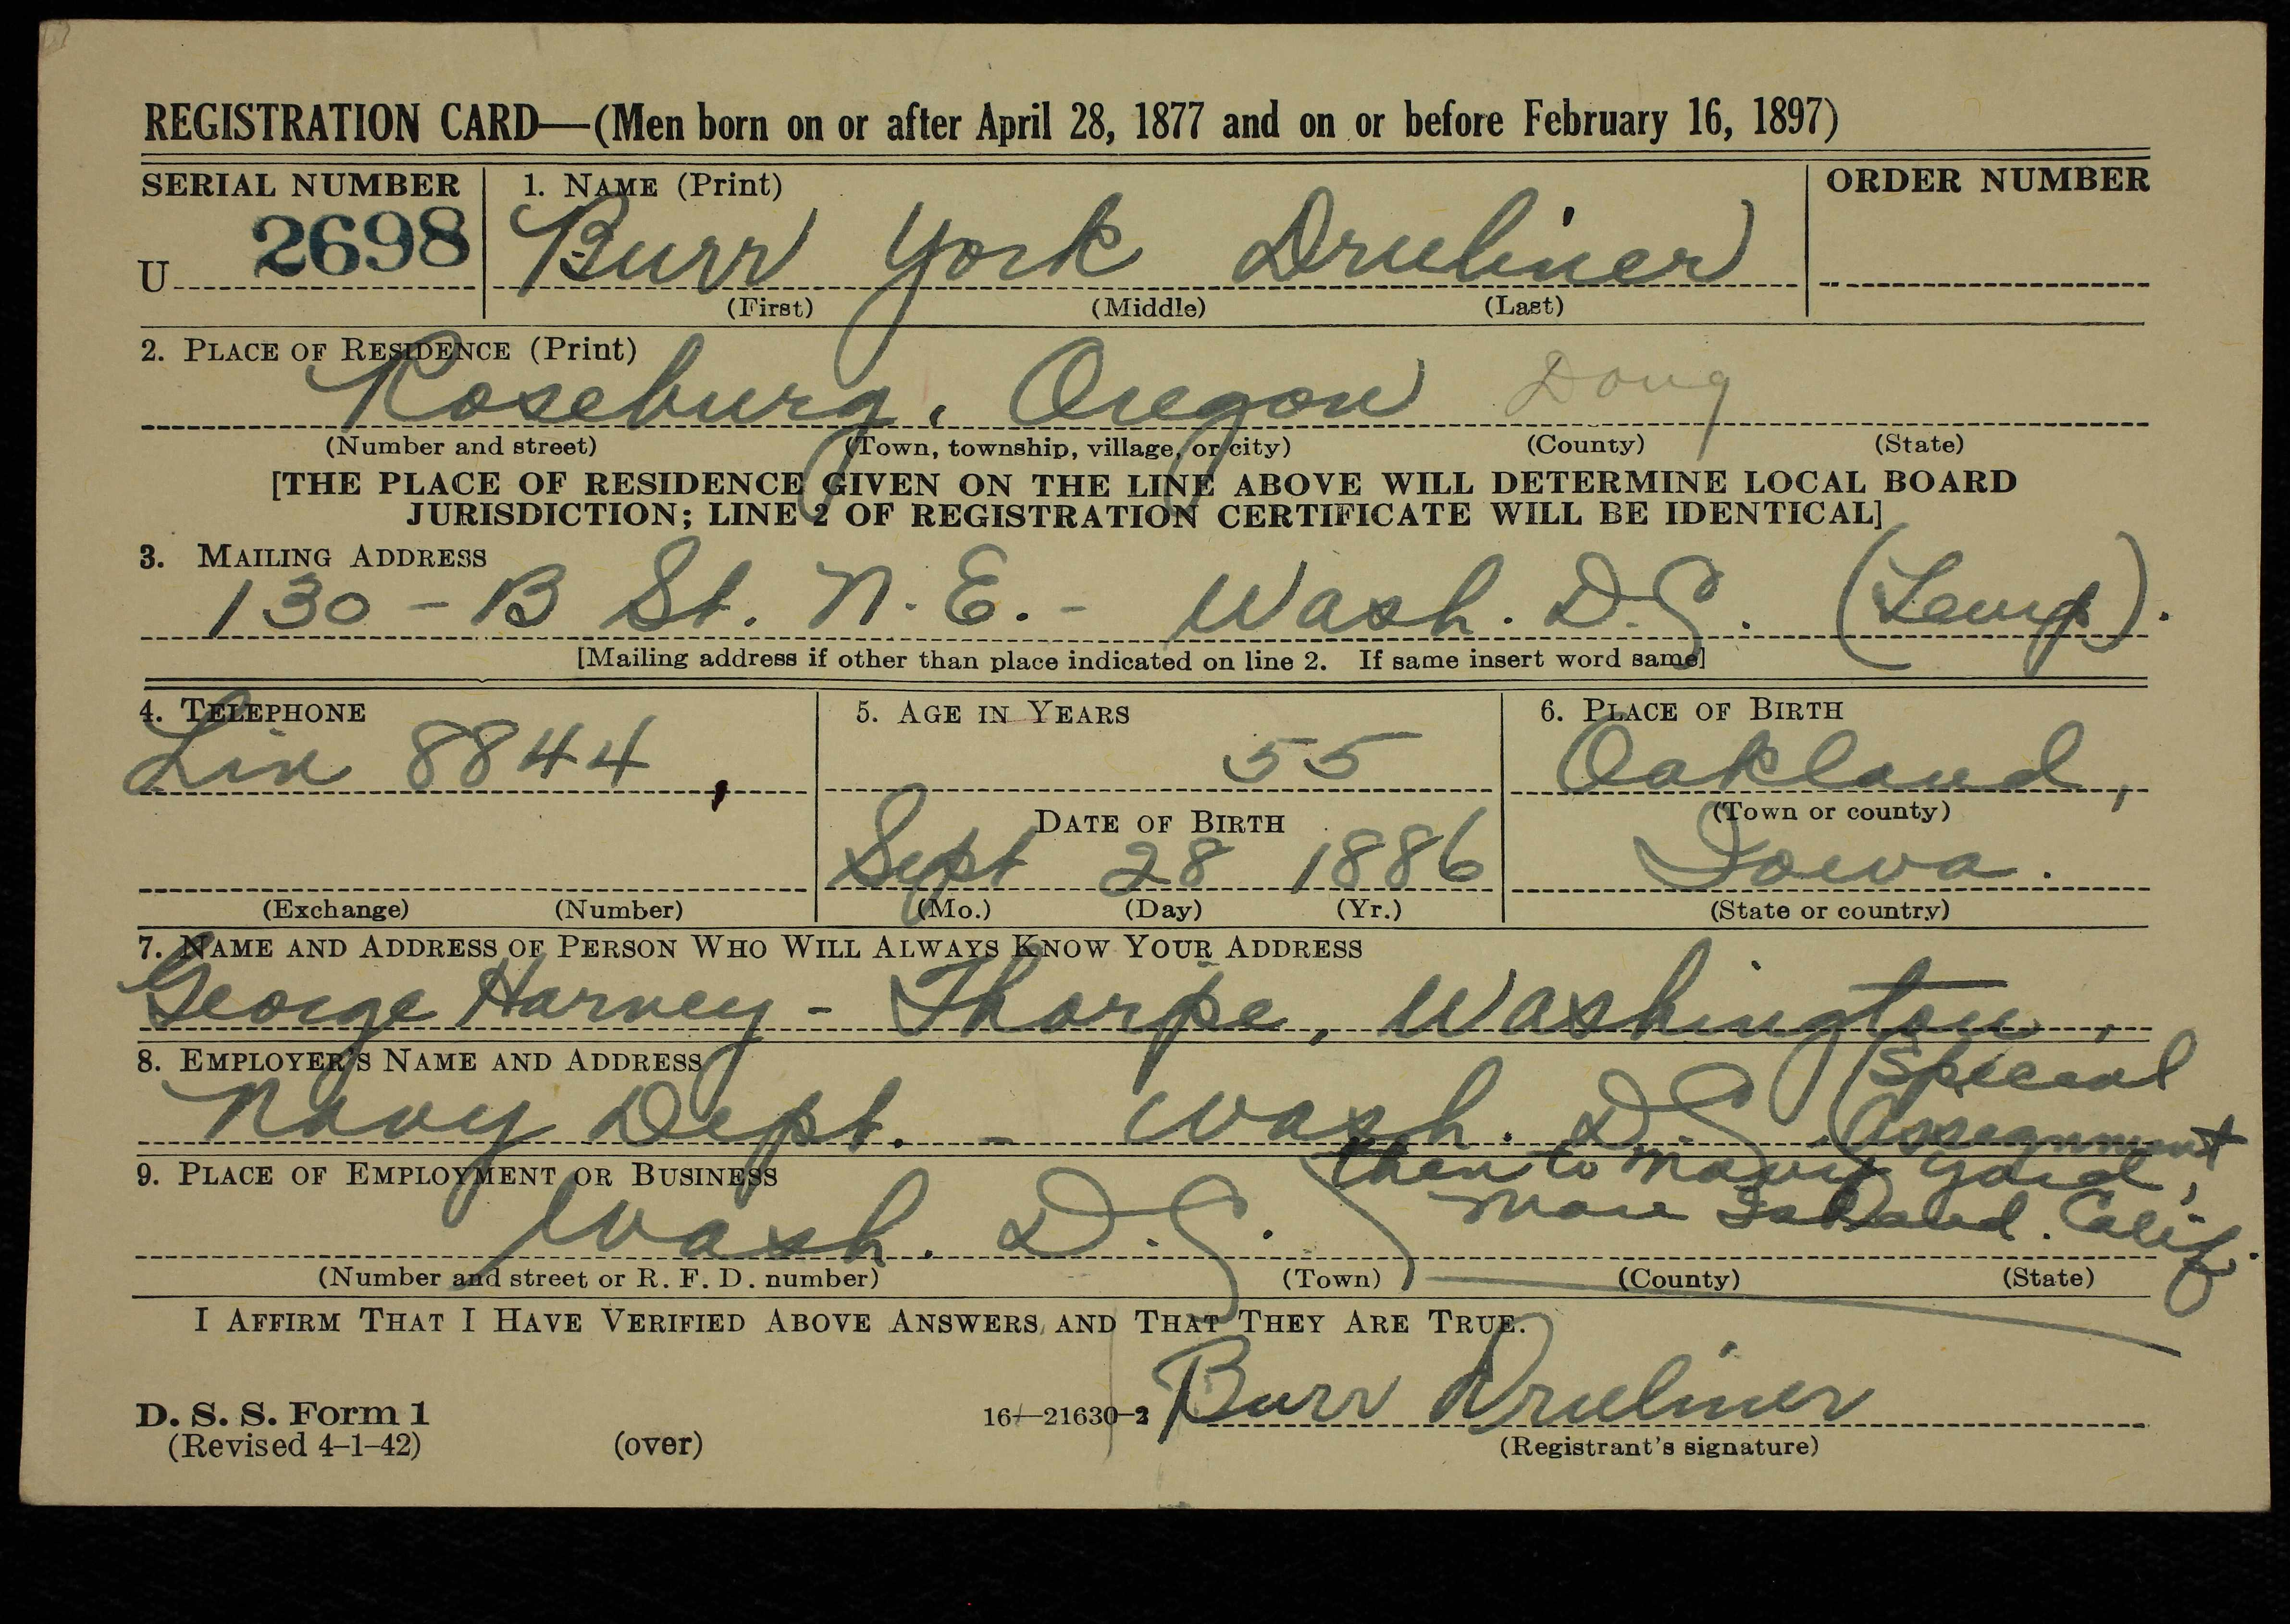 REGISTRATION CARD—(Men born on or after April 28, 1877 and on or before February 16, 1897)
SERIAL NUMBER
1. NAME (Print)
ORDER NUMBER
U 2698
Burr York Druliner
(First) (Middle) (Last)
2. PLACE OF RESIDENCE (Print)
Roseburg, Oregon Doug
(Number and street) (Town, township, village, or city) (County) (State)
[THE PLACE OF RESIDENCE GIVEN ON THE LINE ABOVE WILL DETERMINE LOCAL BOARD
JURISDICTION; LINE 2 OF REGISTRATION CERTIFICATE WILL BE IDENTICAL]
3. MAILING ADDRESS
130 - B St. N.E. - Wash. D.C. (Temp).
[Mailing address if other than place indicated on line 2. If same insert word same]
4. TELEPHONE
Lin 8844
(Exchange) (Number)
5. AGE IN YEARS
55
DATE OF BIRTH
Sept 28 1886
(Mo.) (Day) (Yr.)
6. PLACE OF BIRTH
Oakland,
(Town or county)
Iowa.
(State or country)
7. NAME AND ADDRESS OF PERSON WHO WILL ALWAYS KNOW YOUR ADDRESS
George Harvey - Thorpe, Washington,
8. EMPLOYER'S NAME AND ADDRESS
Navy Dept. - Wash. D.C. (Special
Assignment
then to Navy Yard,
Mare Island. Calif.
9. PLACE OF EMPLOYMENT OR BUSINESS
Wash. D.C.
(Number and street or R. F. D. number) (Town) (County) (State)
I AFFIRM THAT I HAVE VERIFIED ABOVE ANSWERS AND THAT THEY ARE TRUE.
D. S. S. Form 1
(Revised 4-1-42) (over)
16—21630-2
Burr Druliner
(Registrant's signature)